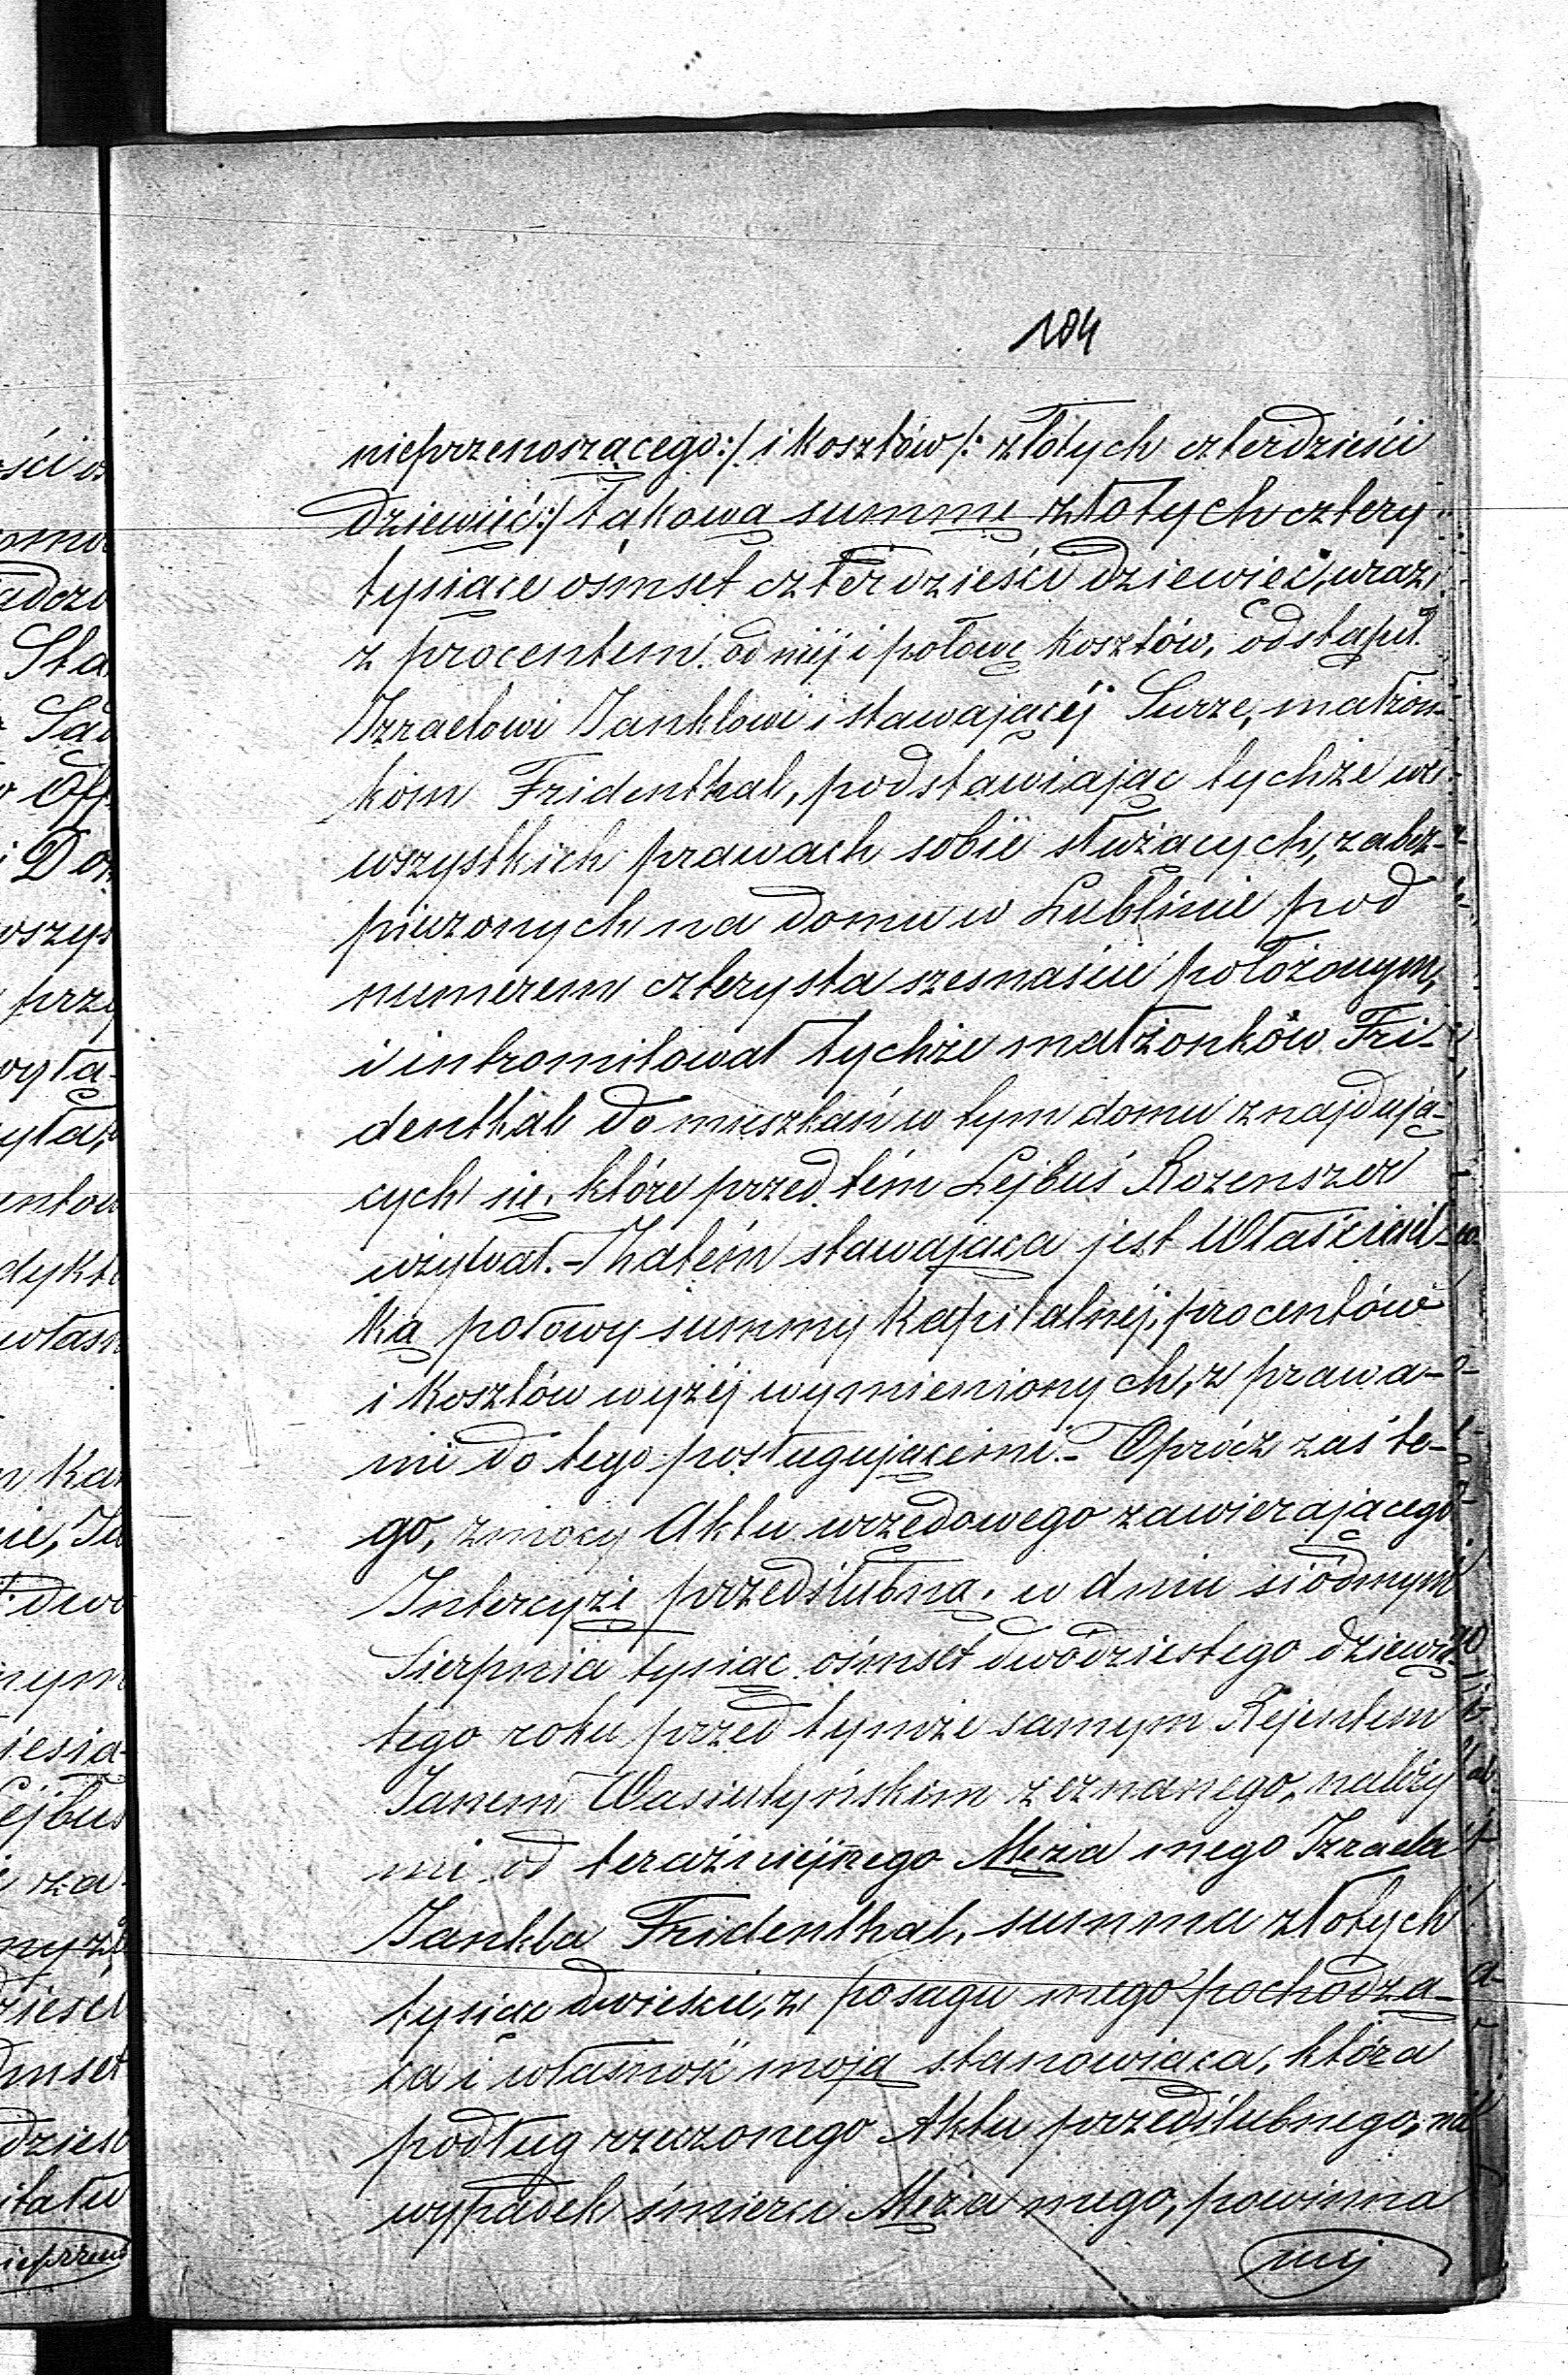 184
nieprzenoszącego:/ i kosztów /: złotych czterdzieści
dziewięć:/ takową summę złotych cztery
tysiące ośmset czterdzieści dziewięć, wraz
z procentem od niéj i połowę kosztów, odstąpił
Izraelowi Janklowi i stawającéj Surze, małżon-
kom Fridenthal, podstawiając tychże we
wszystkich prawach sobie służących, zabez-
pieczonych na domu w Lublinie pod
numerem czterysta szesnaście położonym,
i intromitował tychże małżonków Fri-
denthal do mieszkań w tym domu znajdują-
cych się, które przed tém Lejbuś Rozenszer
używał. - Zatém stawająca jest Właściciel-
ką połowy summy kapitalnéj, procentów
i kosztów wyżéj wymienionych, z prawa-
mi do tego posługującemi. - Oprócz zaś te-
go, z mocy Aktu urzędowego zawierającego
Intercyzę przedślubną, w dniu siódmym
Sierpnia tysiąc ośmset dwódziestego dziewią-
tego roku przed tymże samym Rejentem
Janem Wasiutyńskim zeznanego, należy
mi od teraźniejszego Męża mego Izraela
Jankla Fridenthal, summa złotych
tysiąc dwieście, z posagu mego pochodzą-
ca i własność moją stanowiąca, która
podług rzeczonego Aktu przedślubnego, na
wypadek śmierci Męża mego, powinna
mij